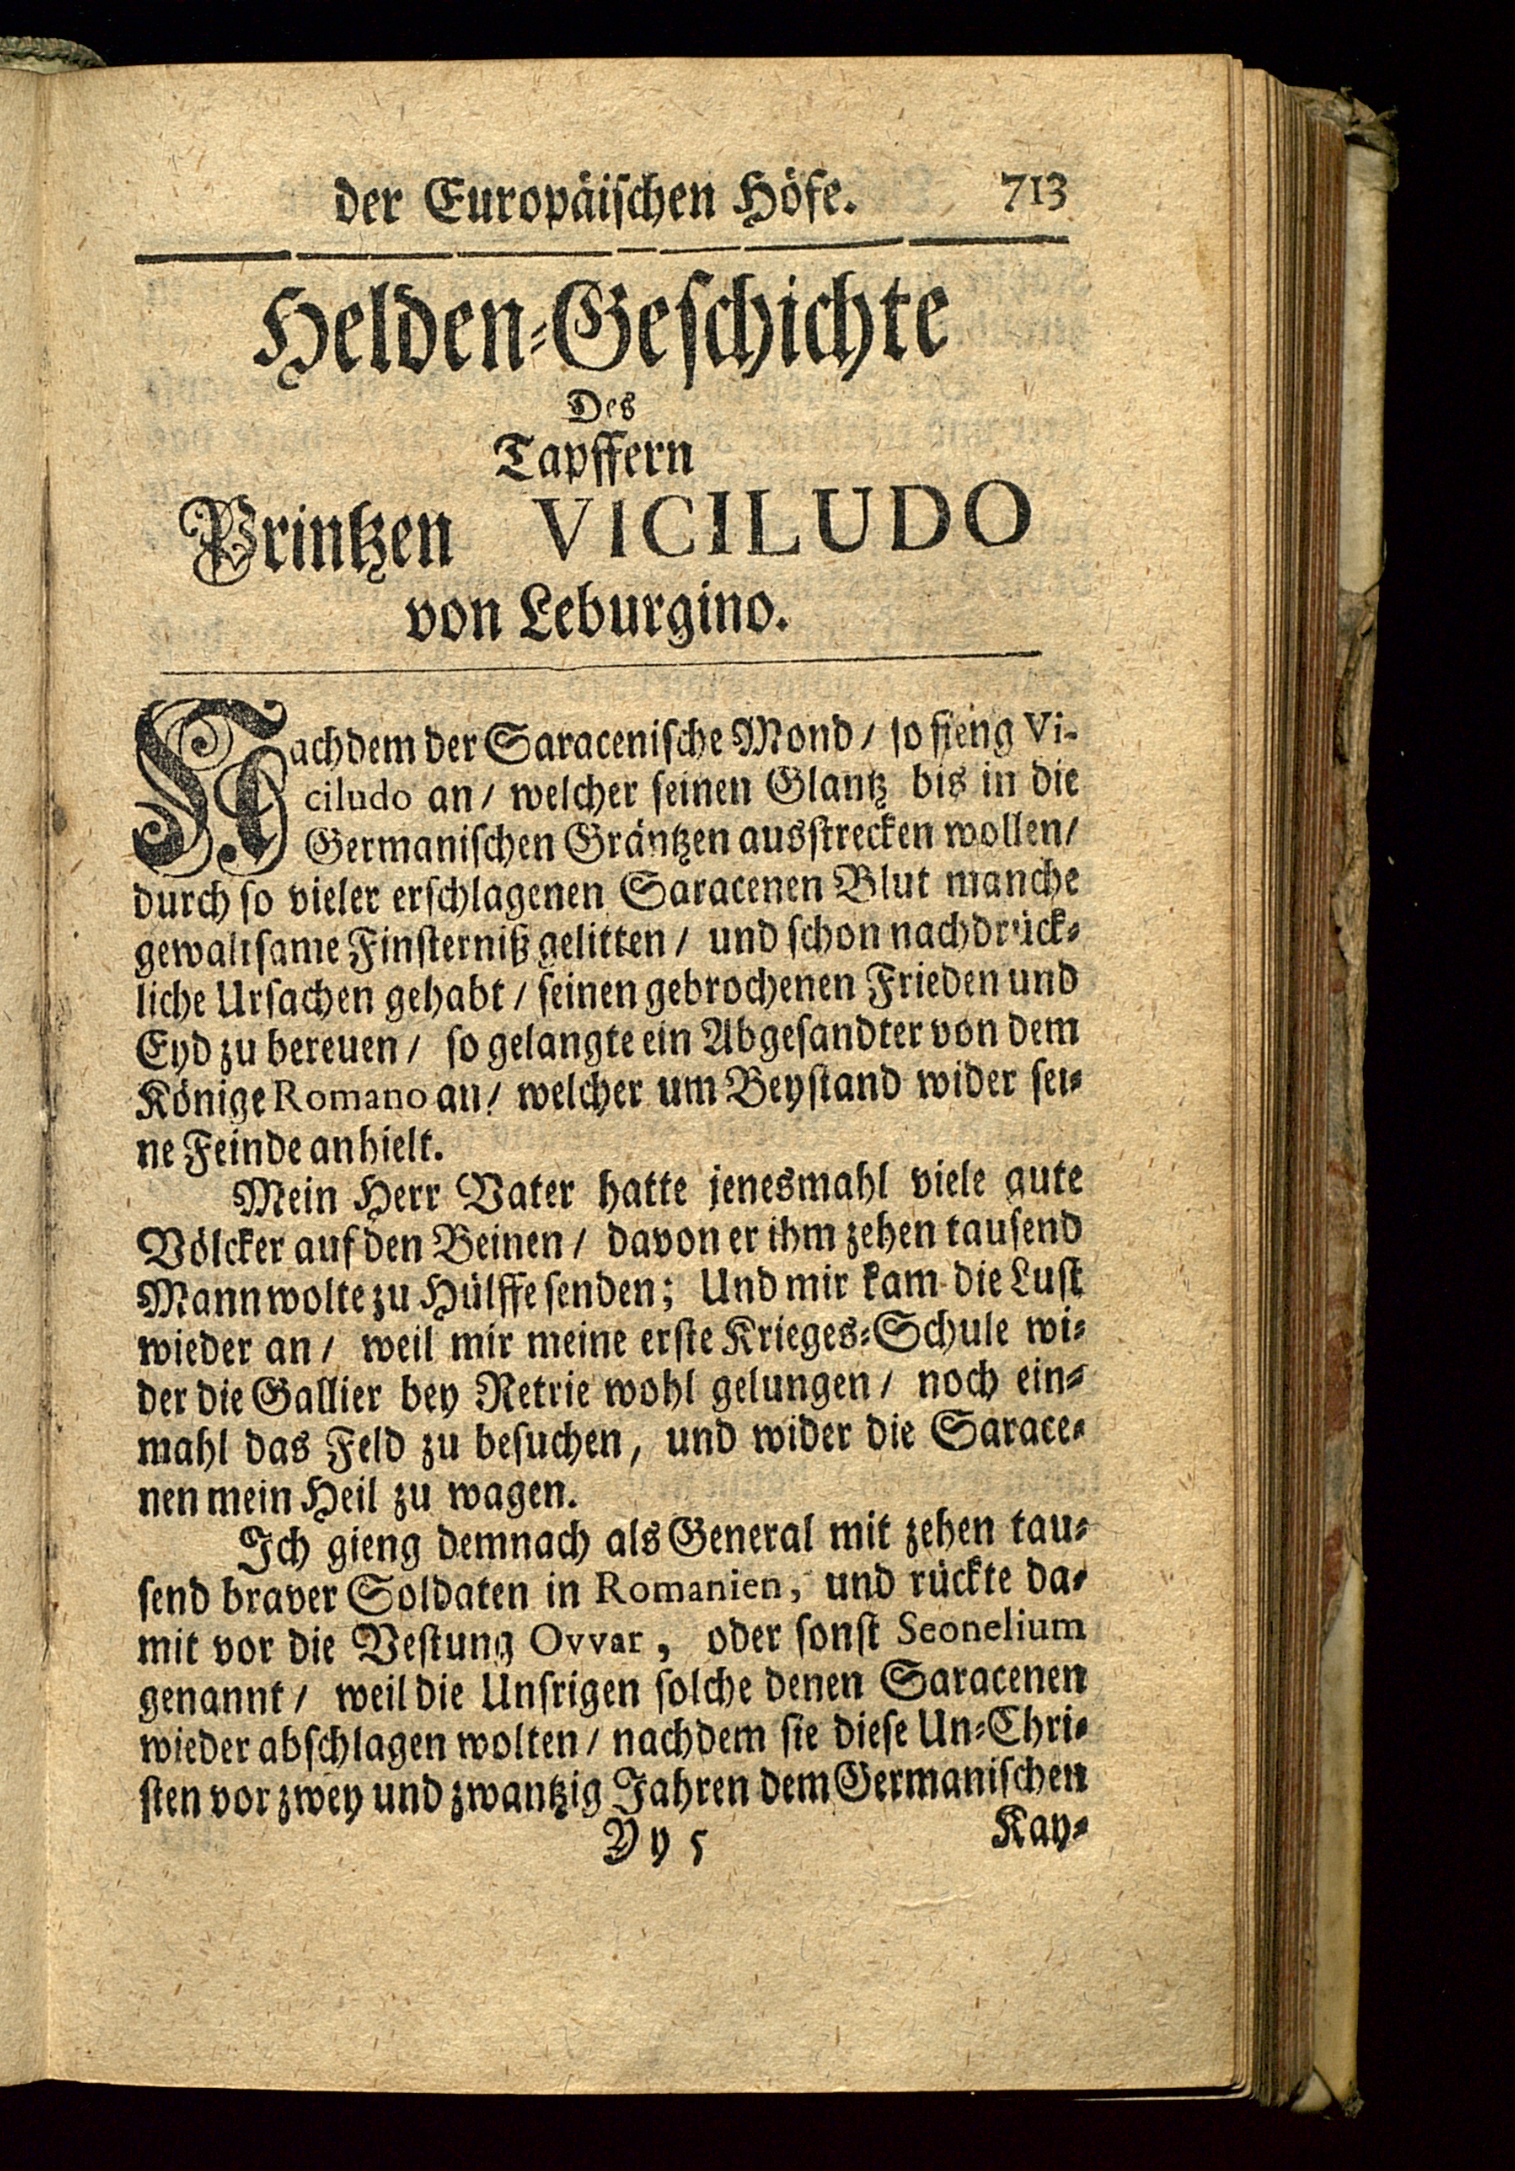 der Europäischen Höfe. 713
Helden-Geschichte
Des
Tapffern
Printzen VICILUDO
von Leburgino.
Nachdem der Saracenische Mond / so fieng Vi-
ciludo an / welcher seinen Glantz bis in die
Germanischen Gräntzen ausstrecken wollen /
durch so vieler erschlagenen Saracenen Blut manche
gewaltsame Finsterniß gelitten / und schon nachdrück-
liche Ursachen gehabt / seinen gebrochenen Frieden und
Eyd zu bereuen / so gelangte ein Abgesandter von dem
Könige Romano an / welcher um Beystand wider sei-
ne Feinde anhielt.
Mein Herr Vater hatte jenesmahl viele gute
Völcker auf den Beinen / davon er ihm zehen tausend
Mann wolte zu Hülffe senden; Und mir kam die Lust
wieder an / weil mir meine erste Krieges-Schule wi-
der die Gallier bey Retrie wohl gelungen / noch ein-
mahl das Feld zu besuchen, und wider die Sarace-
nen mein Heil zu wagen.
Ich gieng demnach als General mit zehen tau-
send braver Soldaten in Romanien, und rückte da-
mit vor die Vestung Ovvar, oder sonst Seonelium
genannt / weil die Unsrigen solche denen Saracenen
wieder abschlagen wolten / nachdem sie diese Un-Chri-
sten vor zwey und zwantzig Jahren dem Germanischen
Yy 5 Kay-